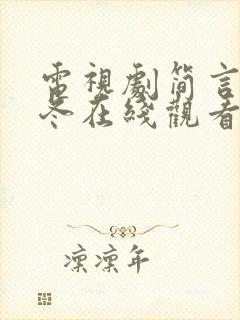 電視劇簡言
冬在綫觀看
凜凜年